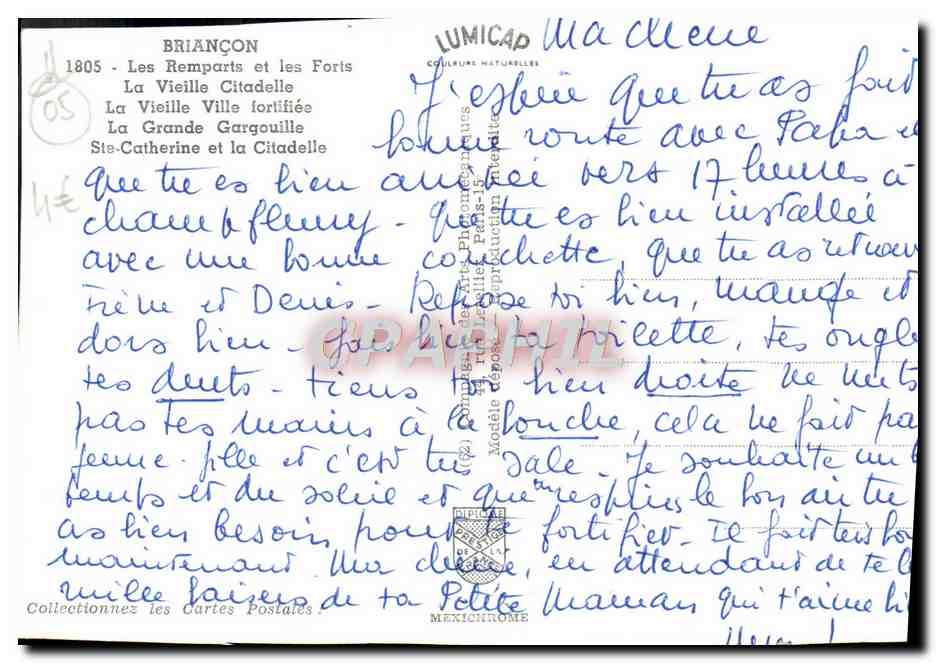 BRIANÇON
1805 - Les Remparts et les Forts
La Vieille Citadelle
La Vieille Ville fortifiée
La Grande Gargouille
Ste-Catherine et la Citadelle
05
4€
LUMICAP
COULEURS NATURELLES
Ma chérie
J'espère que tu as fait
bonne route avec Papa et
que tu es bien arrivée vers 17 heures à
champfleury - que tu es bien installée
avec une bonne couchette, que tu as retrouv
et Denis - Repose toi bien, mange et
dors bien - fais bien ta toilette, tes ongle
tes dents - tiens toi bien droite ne mets
pas tes mains à la bouche, cela ne fait pa
jeune fille et c'est très sale - Je souhaite un b
temps et du soleil et que tu respires le bon air tu
as bien besoin pour te fortifier - Il fait très bo
maintenant Ma chérie, en attendant de te l
mille baisers de ta Petite Maman qui t'aime bi
(62) Compagnie des Arts Photomécaniques
44, rue Letellier, Paris-15
Modèle déposé - Reproduction interdite
CPAPHIL
DIPLOME
PRESTIGE
DE LA
MEXICHROME
Collectionnez les Cartes Postales !